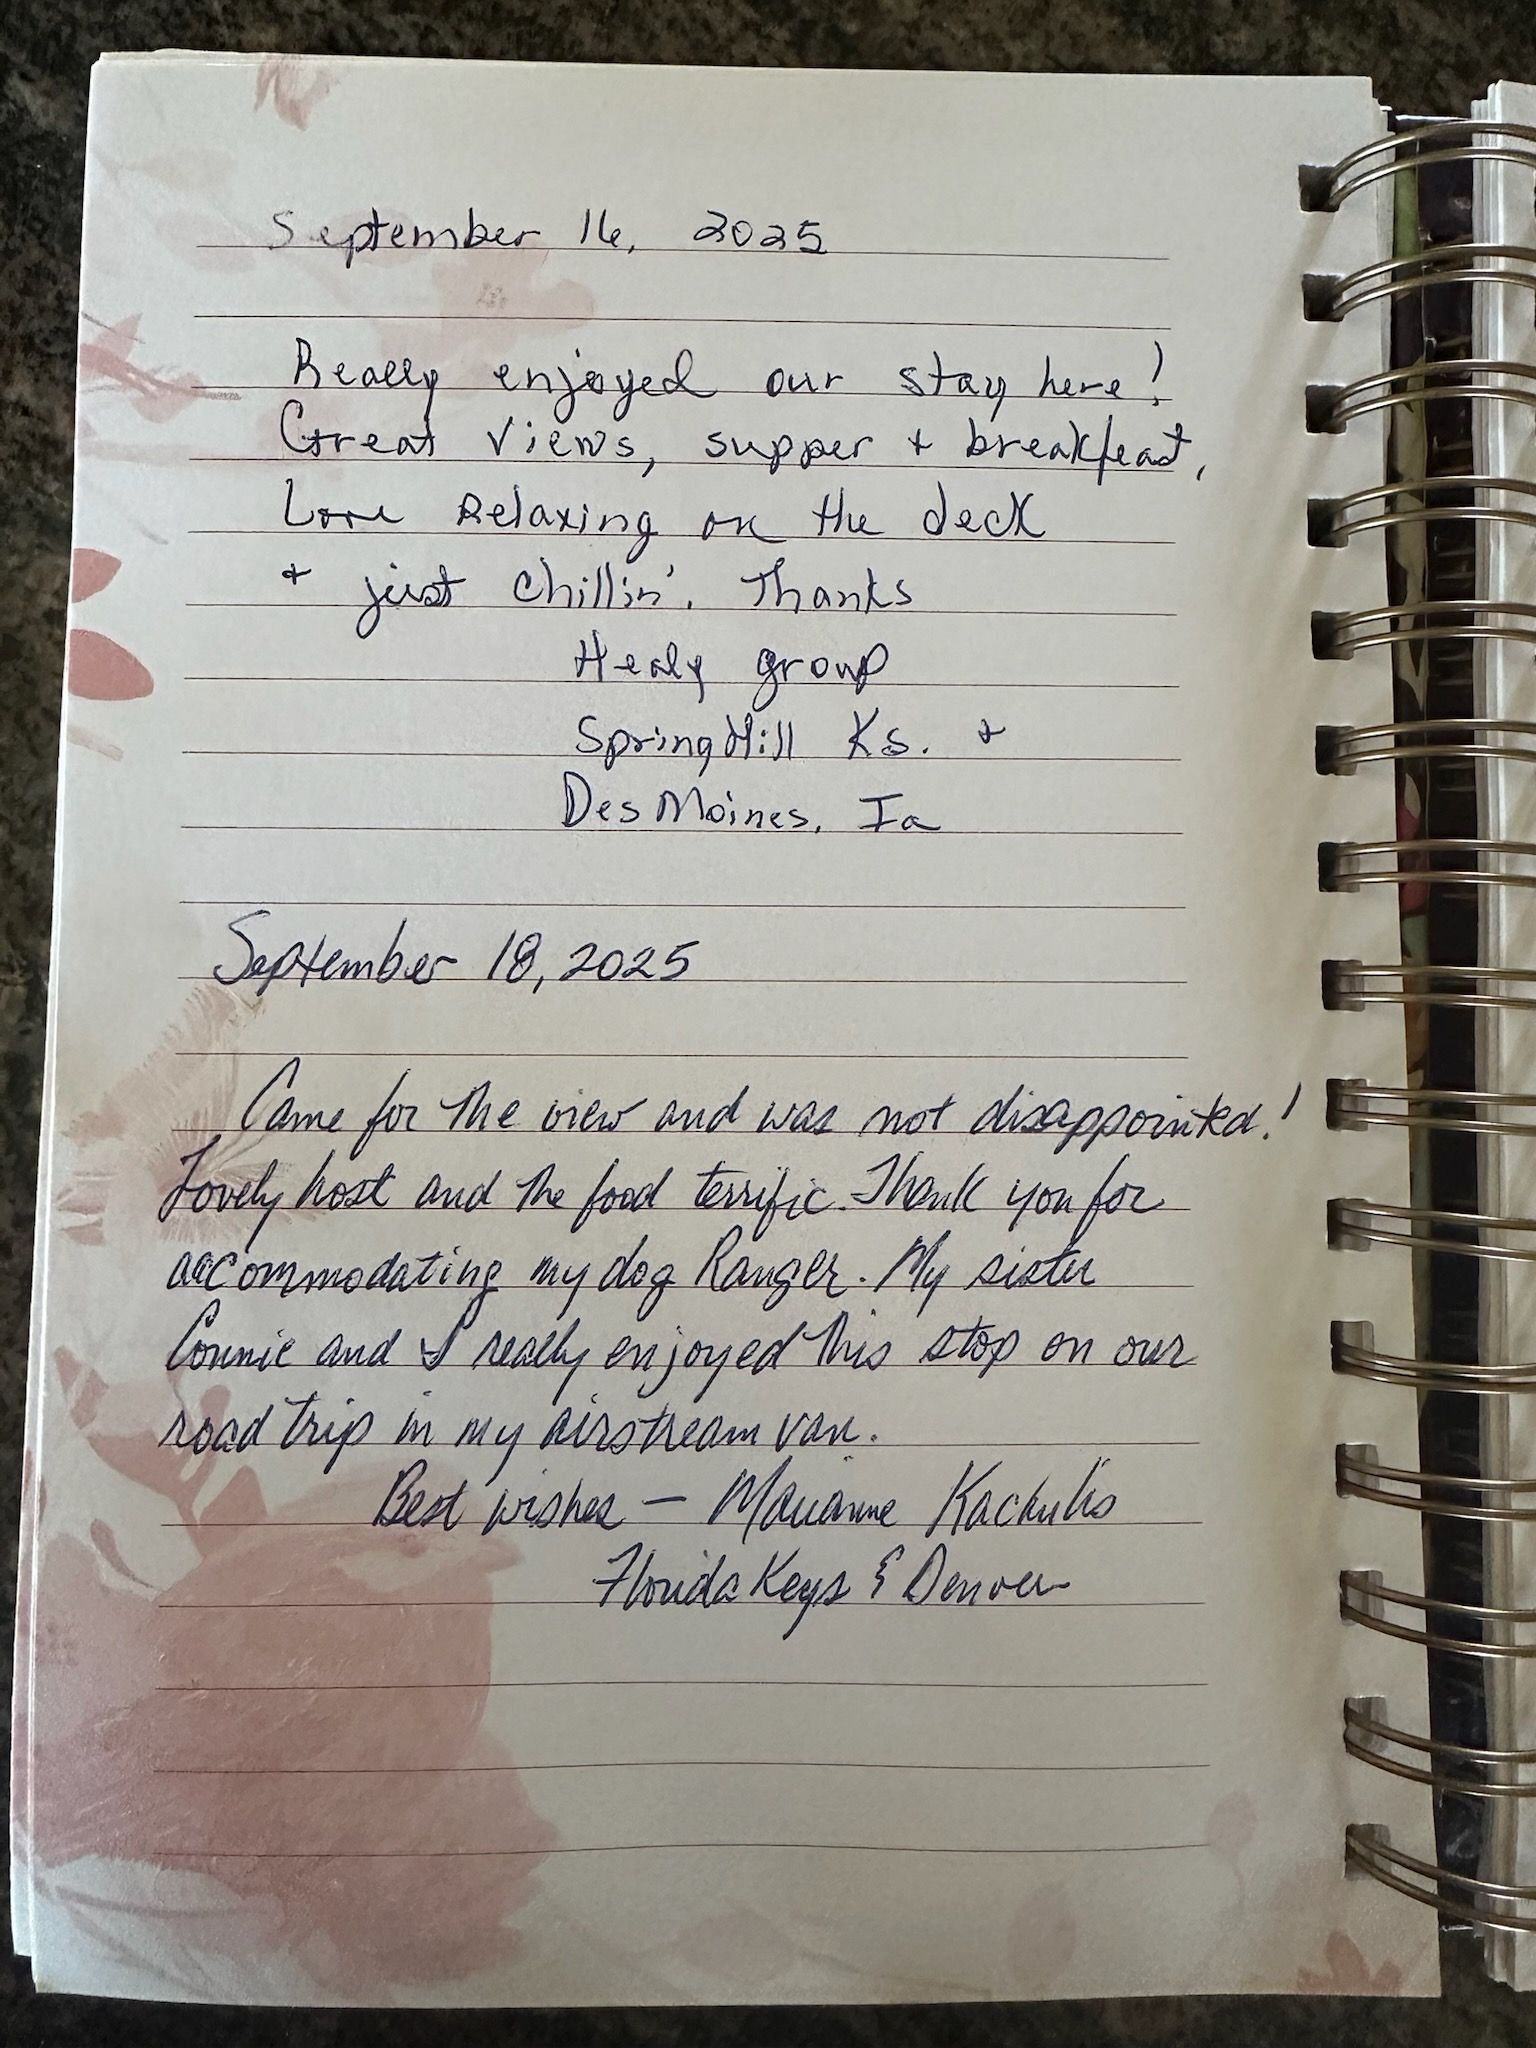 September 16, 2025
Really enjoyed our stay here!
Great views, supper + breakfeast,
Love Relaxing on the deck
+ just chillin'. Thanks
Healy group
Spring Hill Ks. +
Des Moines, Ia
September 18, 2025
Came for the view and was not disappointed!
Lovely host and the food terrific. Thank you for
accommodating my dog Ranger. My sister
Connie and I really enjoyed this stop on our
road trip in my airstream van.
Best wishes — Marianne Kachulis
Florida Keys & Denver